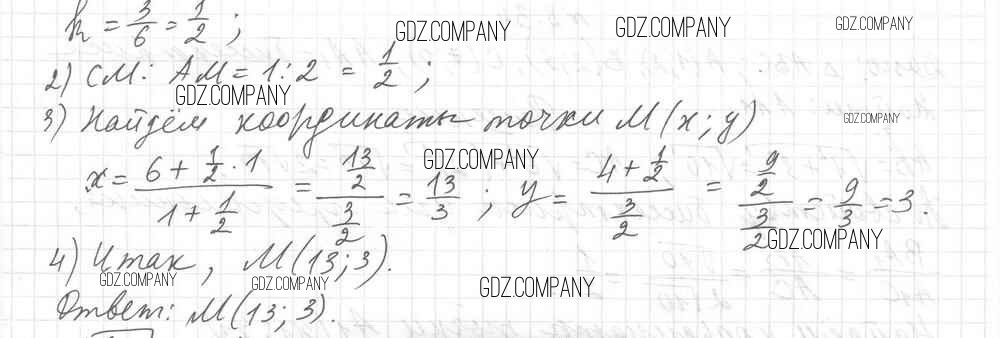 k = 3/6 = 1/2 ;
GDZ.COMPANY GDZ.COMPANY GDZ.COMPANY
2) CM : AM = 1 : 2 = 1/2 ;
GDZ.COMPANY
3) Найдём координаты точки M(x; y)
GDZ.COMPANY
x = (6 + 1/2 · 1)/(1 + 1/2) = (13/2)/(3/2) = 13/3 ; y = (4 + 1/2)/(3/2) = (9/2)/(3/2) = 9/3 = 3.
GDZ.COMPANY
GDZ.COMPANY
4) Итак, M(13; 3).
GDZ.COMPANY GDZ.COMPANY GDZ.COMPANY
Ответ: M(13; 3).